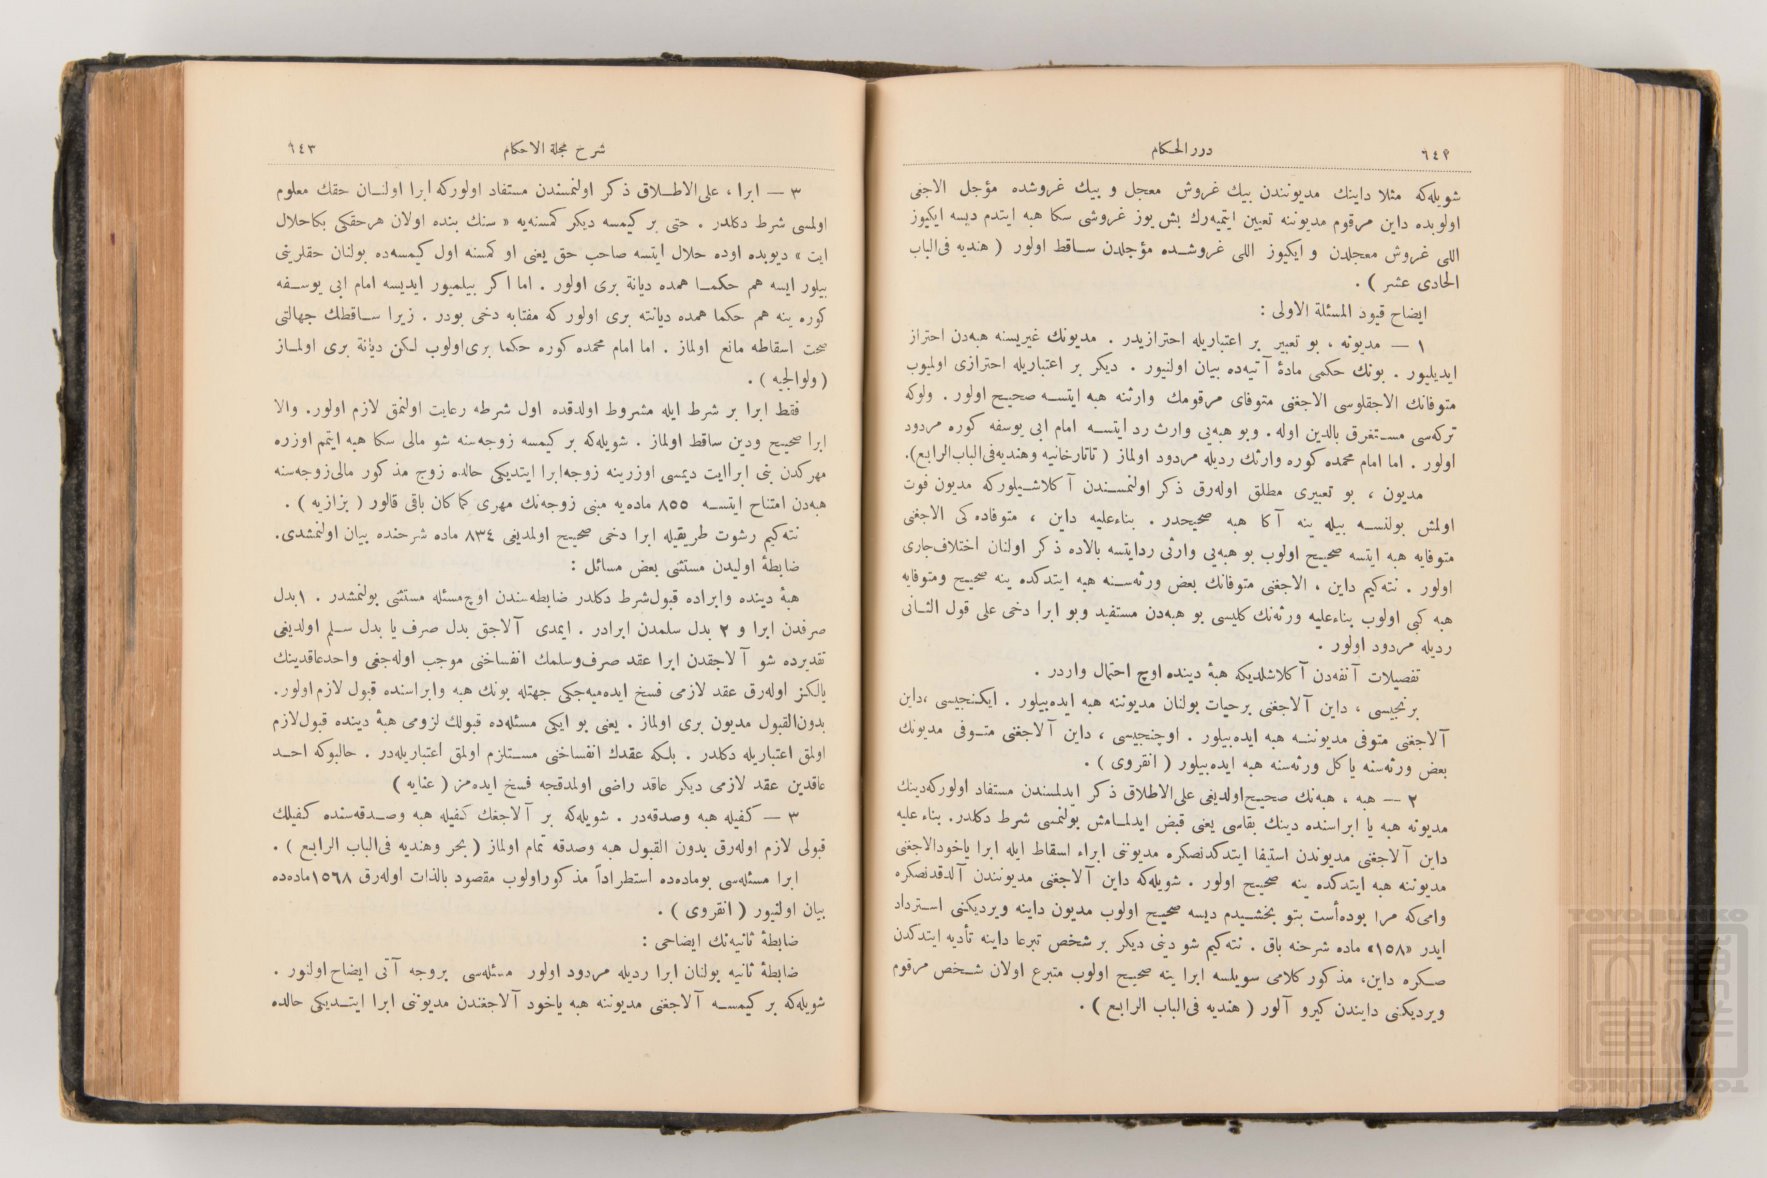 ٦٤٢
درر الحكام
شويله‌كه مثلا داينك مديونندن بيك غروش معجل و بيك غروشده مؤجل الاجغى
اولوبده داين مرقوم مديوننه تعيين ايتميه‌رك بش يوز غروشى سكا هبه ايتدم ديسه ايكيوز
اللى غروش معجلدن و ايكيوز اللى غروشده مؤجلدن ساقط اولور ( هنديه فى‌الباب
الحادى عشر ) .
ايضاح قيود المسئلة الاولى :
١ — مديونه ، بو تعبير بر اعتباريله احترازيدر . مديونك غيريسنه هبه‌دن احتراز
ايديليور . بونك حكمى مادۀ آتيه‌ده بيان اولنيور . ديكر بر اعتباريله احترازى اولميوب
متوفانك الاجقلوسى الاجغنى متوفاى مرقومك وارثنه هبه ايتسه صحيح اولور . ولوكه
تركه‌سى مستغرق بالدين اوله . وبو هبه‌يى وارث رد ايتسه امام ابى يوسفه كوره مردود
اولور . اما امام محمده كوره وارثك رديله مردود اولماز ( تاتارخانيه وهنديه‌فى‌الباب‌الرابع).
مديون ، بو تعبيرى مطلق اوله‌رق ذكر اولنمسندن آكلاشيلوركه مديون فوت
اولمش بولنسه بيله ينه آكا هبه صحيحدر . بناءعليه داين ، متوفاده‌كى الاجغنى
متوفايه هبه ايتسه صحيح اولوب بو هبه‌يى وارثى ردايتسه بالاده ذكر اولنان اختلاف‌جارى
اولور . نته‌كيم داين ، الاجغنى متوفانك بعض ورثه‌سنه هبه ايتدكده ينه صحيح ومتوفايه
هبه كبى اولوب بناءعليه ورثه‌نك كليسى بو هبه‌دن مستفيد وبو ابرا دخى على قول الثانى
رديله مردود اولور .
تفصيلات آنفه‌دن آكلاشلديكه هبۀ دينده اوچ احتمال واردر .
برنجيسى ، داين آلاجغنى برحيات بولنان مديوننه هبه ايده‌بيلور . ايكنجيسى ،داين
آلاجغنى متوفى مديوننه هبه ايده‌بيلور . اوچنجيسى ، داين آلاجغنى متوفى مديونك
بعض ورثه‌سنه ياكل ورثه‌سنه هبه ايده‌بيلور ( انقروى ) .
٢ — هبه ، هبه‌نك صحيح‌اولديغى على‌الاطلاق ذكر ايدلمسندن مستفاد اولوركه‌دينك
مديونه هبه يا ابراسنده دينك بقاسى يعنى قبض ايدلمامش بولنمسى شرط دكلدر. بناء عليه
داين آلاجغنى مديوندن استيفا ايتدكدنصكره مديوننى ابراء اسقاط ايله ابرا ياخودالاجغنى
مديوننه هبه ايتدكده ينه صحيح اولور . شويله‌كه داين آلاجغنى مديونندن آلدقدنصكره
وامى‌كه مرا بوده‌أست بتو بخشيدم ديسه صحيح اولوب مديون داينه ويرديكنى استرداد
ايدر «١٥٨» ماده شرحنه باق . نته‌كيم شو دينى ديكر بر شخص تبرعا داينه تأديه ايتدكدن
صكره داين، مذكوركلامى سويلسه ابرا ينه صحيح اولوب متبرع اولان شخص مرقوم
ويرديكنى دايندن كيرو آلور ( هنديه فى‌الباب الرابع ) .
شرح مجلة الاحكام
٦٤٣
٣ — ابرا ، على‌الاطلاق ذكر اولنمسندن مستفاد اولوركه ابرا اولنان حقك معلوم
اولمسى شرط دكلدر . حتى بر كيمسه ديكر كمسنه‌يه « سنك بنده اولان هرحقكى بكاحلال
ايت » ديوبده اوده حلال ايتسه صاحب حق يعنى او كمسنه اول كيمسه‌ده بولنان حقلرينى
بيلور ايسه هم حكما همده ديانة برى اولور . اما اكر بيلميور ايديسه امام ابى يوسفه
كوره ينه هم حكما همده ديانته برى اولور كه مفتابه دخى بودر . زيرا ساقطك جهالتى
صحت اسقاطه مانع اولماز . اما امام محمده كوره حكما برى‌اولوب لكن ديانة برى اولماز
( ولوالجيه ) .
فقط ابرا بر شرط ايله مشروط اولدقده اول شرطه رعايت اولنمق لازم اولور. والا
ابرا صحيح ودين ساقط اولماز . شويله‌كه بر كيمسه زوجه‌سنه شو مالى سكا هبه ايتمم اوزره
مهركدن بنى ابراايت ديمسى اوزرينه زوجه‌ابرا ايتديكى حالده زوج مذكور مالى‌زوجه‌سنه
هبه‌دن امتناح ايتسه ٨٥٥ ماده‌يه مبنى زوجه‌نك مهرى كما كان باقى قالور ( بزازيه ) .
نته‌كيم رشوت طريقيله ابرا دخى صحيح اولمديغى ٨٣٤ ماده شرحنده بيان اولنمشدى.
ضابطۀ اوليدن مستثنى بعض مسائل :
هبۀ دينده وابراده قبول‌شرط دكلدر ضابطه‌سندن اوچ‌مسئله مستثنى بولنمشدر . ١بدل
صرفدن ابرا و ٢ بدل سلمدن ابرادر . ايمدى آلاجق بدل صرف يا بدل سلم اولديغى
تقديرده شو آلاجقدن ابرا عقد صرف‌وسلمك انفساخنى موجب اوله‌جغى واحدعاقدينك
يالكز اوله‌رق عقد لازمى فسخ ايده‌ميه‌جكى جهتله بونك هبه وابراسنده قبول لازم‌اولور.
بدون‌القبول مديون برى اولماز . يعنى بو ايكى مسئله‌ده قبولك لزومى هبۀ دينده قبول‌لازم
اولمق اعتباريله دكلدر . بلكه عقدك انفساخنى مستلزم اولمق اعتباريله‌در . حالبوكه احد
عاقدين عقد لازمى ديكر عاقد راضى اولمدقجه فسخ ايده‌مز ( عنايه )
٣ — كفيله هبه وصدقه‌در . شويله‌كه بر آلاجغك كفيله هبه وصدقه‌سنده كفيلك
قبولى لازم اوله‌رق بدون القبول هبه وصدقه تمام اولماز ( بحر وهنديه فى‌الباب الرابع ) .
ابرا مسئله‌سى بوماده‌ده استطراداً مذكوراولوب مقصود بالذات اوله‌رق ١٥٦٨ماده‌ده
بيان اولنيور ( انقروى ) .
ضابطۀ ثانيه‌نك ايضاحى :
ضابطۀ ثانيه بولنان ابرا رديله مردود اولور مسئله‌سى بروجه آتى ايضاح‌اولنور .
شويله‌كه بر كيمسه آلاجغنى مديوننه هبه ياخود آلاجغندن مديوننى ابرا ايتديكى حالده
TOYO BUNKO
TOYO BUNKO